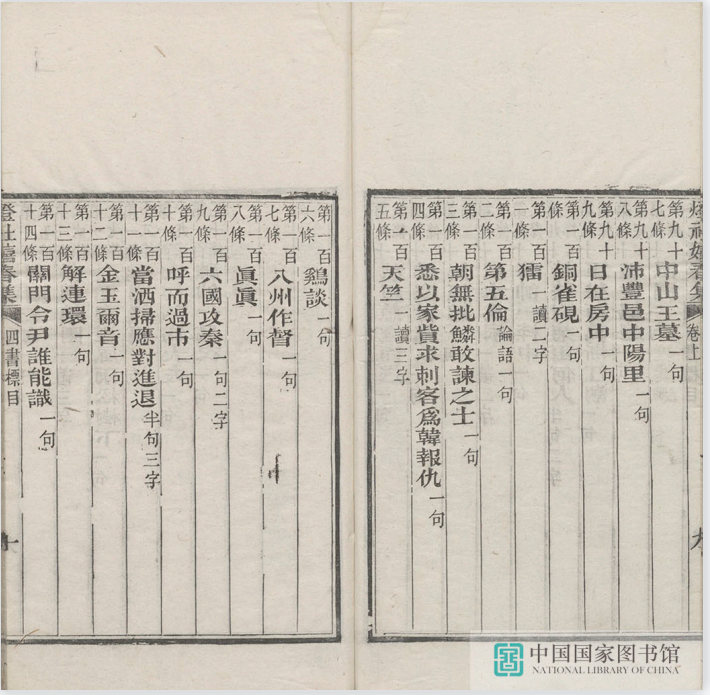 燈社嬉春集 卷上 九
第九十七條 中山王墓 一句
第九十八條 沛豐邑中陽里 一句
第九十九條 日在房中 一句
第一百條 銅雀硯 一句
第一百一條 一讀二字
第一百二條 第五倫 論語一句
第一百三條 朝無批鱗敢諫之士 一句
第一百四條 悉以家貲求刺客爲韓報仇 一句
第一百五條 天竺 一讀三字
第一百六條 鷄談 一句
第一百七條 八州作督 一句
第一百八條 眞眞 一句
第一百九條 六國攻秦 一句二字
第一百十條 呼而過市 一句
第一百十一條 當洒掃應對進退 半句三字
第一百十二條 金玉爾音 一句
第一百十三條 解連環 一句
第一百十四條 關門令尹誰能識 一句
燈社嬉春集 四書標目 十
中国国家图书馆
NATIONAL LIBRARY OF CHINA